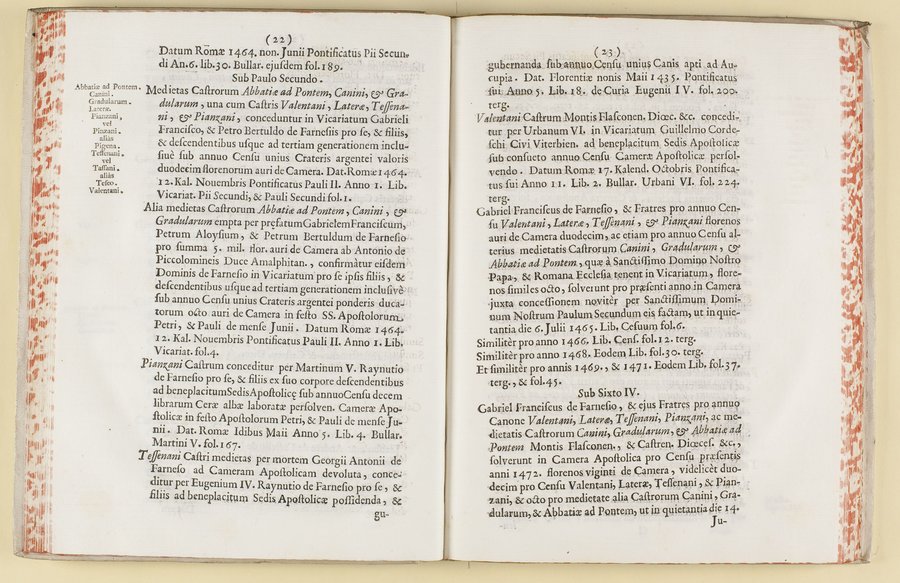 (22)
Datum Romæ 1464. non. Junii Pontificatus Pii Secun-
di An.6. lib.30. Bullar. ejuſdem fol.189.
Sub Paulo Secundo.
Abbatiæ ad Pontem.
Canini.
Gradularum.
Lateræ.
Pianzani,
vel
Pinzani.
aliàs
Pigena.
Teſſenani.
vel
Taſſani.
aliàs
Teſco.
Valentani.
Medietas Caſtrorum Abbatiæ ad Pontem, Canini, & Gra-
dularum, una cum Caſtris Valentani, Lateræ, Teſſena-
ni, & Pianzani, conceduntur in Vicariatum Gabrieli
Franciſco, & Petro Bertuldo de Farneſiis pro ſe, & filiis,
& deſcendentibus uſque ad tertiam generationem inclu-
ſiuè ſub annuo Cenſu unius Crateris argentei valoris
duodecim florenorum auri de Camera. Dat. Romæ 1464.
12. Kal. Nouembris Pontificatus Pauli II. Anno 1. Lib.
Vicariat. Pii Secundi, & Pauli Secundi fol.1.
Alia medietas Caſtrorum Abbatiæ ad Pontem, Canini, &
Gradularum empta per pręfatum Gabrielem Franciſcum,
Petrum Aloyſium, & Petrum Bertuldum de Farneſio
pro ſumma 5. mil. flor. auri de Camera ab Antonio de
Piccolomineis Duce Amalphitan., confirmàtur eiſdem
Dominis de Farneſio in Vicariatum pro ſe ipſis filiis, &
deſcendentibus uſque ad tertiam generationem incluſivè
ſub annuo Cenſu unius Crateris argentei ponderis duca-
torum octo auri de Camera in feſto SS. Apoſtolorum
Petri, & Pauli de menſe Junii. Datum Romæ 1464.
12. Kal. Nouembris Pontificatus Pauli II. Anno 1. Lib.
Vicariat. fol.4.
Pianzani Caſtrum conceditur per Martinum V. Raynutio
de Farneſio pro ſe, & filiis ex ſuo corpore deſcendentibus
ad beneplacitum Sedis Apoſtolicę ſub annuo Cenſu decem
librarum Ceræ albæ laboratæ perſolven. Cameræ Apo-
ſtolicæ in feſto Apoſtolorum Petri, & Pauli de menſe Ju-
nii. Dat. Romæ Idibus Maii Anno 5. Lib. 4. Bullar.
Martini V. fol.167.
Teſſenani Caſtri medietas per mortem Georgii Antonii de
Farneſo ad Cameram Apoſtolicam devoluta, conce-
ditur per Eugenium IV. Raynutio de Farneſio pro ſe, &
filiis ad beneplacitum Sedis Apoſtolicæ poſſidenda, &
gu-
(23)
gubernanda ſub annuo Cenſu unius Canis apti ad Au-
cupia. Dat. Florentiæ nonis Maii 1435. Pontificatus
ſui Anno 5. Lib. 18. de Curia Eugenii IV. fol. 200.
terg.
Valentani Caſtrum Montis Flaſconen. Diœc. &c. concedi-
tur per Urbanum VI. in Vicariatum Guillelmo Corde-
ſchi Civi Viterbien. ad beneplacitum Sedis Apoſtolicæ
ſub conſueto annuo Cenſu Cameræ Apoſtolicæ perſol-
vendo. Datum Romæ 17. Kalend. Octobris Pontifica-
tus ſui Anno 11. Lib. 2. Bullar. Urbani VI. fol. 224.
terg.
Gabriel Franciſcus de Farneſio, & Fratres pro annuo Cen-
ſu Valentani, Lateræ, Teſſenani, & Pianzani florenos
auri de Camera duodecim, ac etiam pro annuo Cenſu al-
terius medietatis Caſtrorum Canini, Gradularum, &
Abbatiæ ad Pontem, quæ à Sanctiſſimo Domino Noſtro
Papa, & Romana Eccleſia tenent in Vicariatum, flore-
nos ſimiles octo, ſolverunt pro præſenti anno in Camera
juxta conceſſionem novitèr per Sanctiſſimum Domi-
num Noſtrum Paulum Secundum eis factam, ut in quie-
tantia die 6. Julii 1465. Lib. Ceſuum fol.6.
Similitèr pro anno 1466. Lib. Cenſ. fol.12. terg.
Similitèr pro anno 1468. Eodem Lib. fol.30. terg.
Et ſimilitèr pro annis 1469., & 1471. Eodem Lib. fol.37.
terg., & fol.45.
Sub Sixto IV.
Gabriel Franciſcus de Farneſio, & ejus Fratres pro annuo
Canone Valentani, Lateræ, Teſſenani, Pianzani, ac me-
dietatis Caſtrorum Canini, Gradularum, & Abbatiæ ad
Pontem Montis Flaſconen., & Caſtren. Diœceſ. &c.,
ſolverunt in Camera Apoſtolica pro Cenſu præſentis
anni 1472. florenos viginti de Camera, videlicèt duo-
decim pro Cenſu Valentani, Lateræ, Teſſenani, & Pian-
zani, & octo pro medietate alia Caſtrorum Canini, Gra-
dularum, & Abbatiæ ad Pontem, ut in quietantia die 14.
Ju-